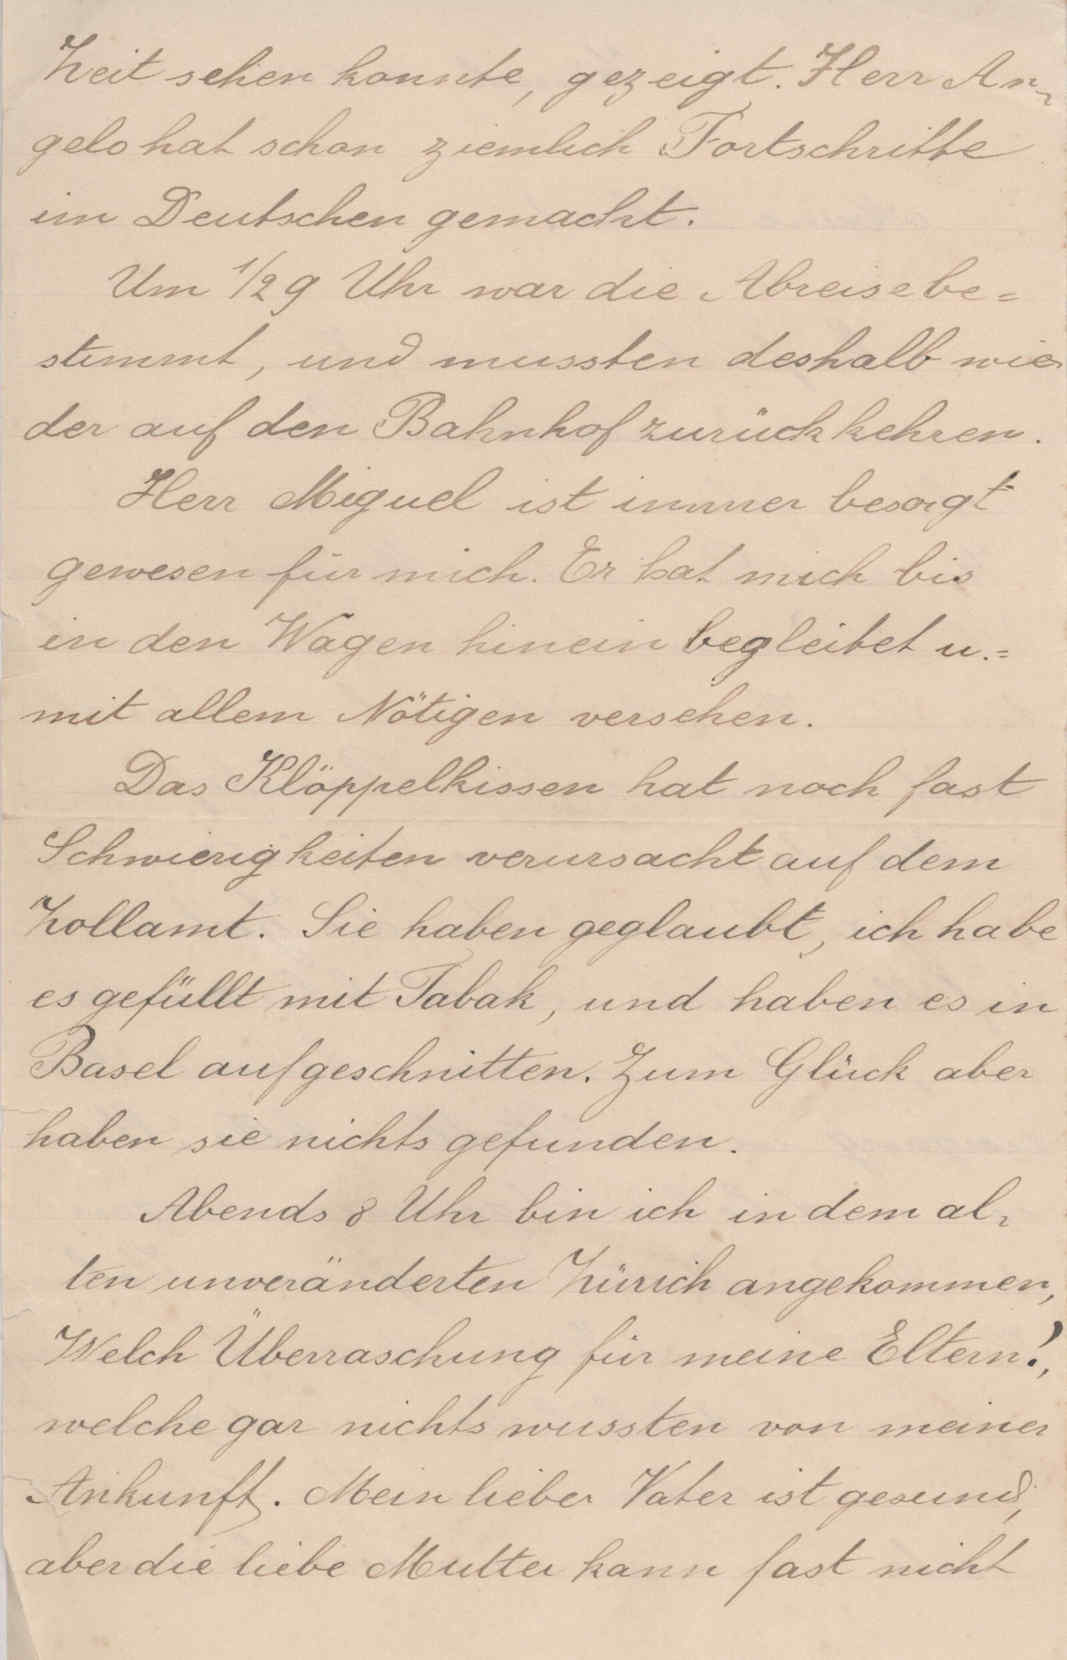 Zeit sehen konnte, gezeigt. Herr An-
gelo hat schon ziemlich Fortschritte
im Deutschen gemacht.
Um 1/2 9 Uhr war die Abreise be=
stimmt, und mussten deshalb wie-
der auf den Bahnhof zurückkehren.
Herr Miguel ist immer besorgt
gewesen für mich. Er hat mich bis
in den Wagen hinein begleitet u.=
mit allem Nötigen versehen.
Das Klöppelkissen hat noch fast
Schwierigkeiten verursacht auf dem
Zollamt. Sie haben geglaubt, ich habe
es gefüllt mit Tabak, und haben es in
Basel aufgeschnitten. Zum Glück aber
haben sie nichts gefunden.
Abends 8 Uhr bin ich in dem al-
ten unveränderten Zürich angekommen,
Welch Überraschung für meine Eltern!,
welche gar nichts wussten von meiner
Ankunft. Mein lieber Vater ist gesund,
aber die liebe Mutter kann fast nicht